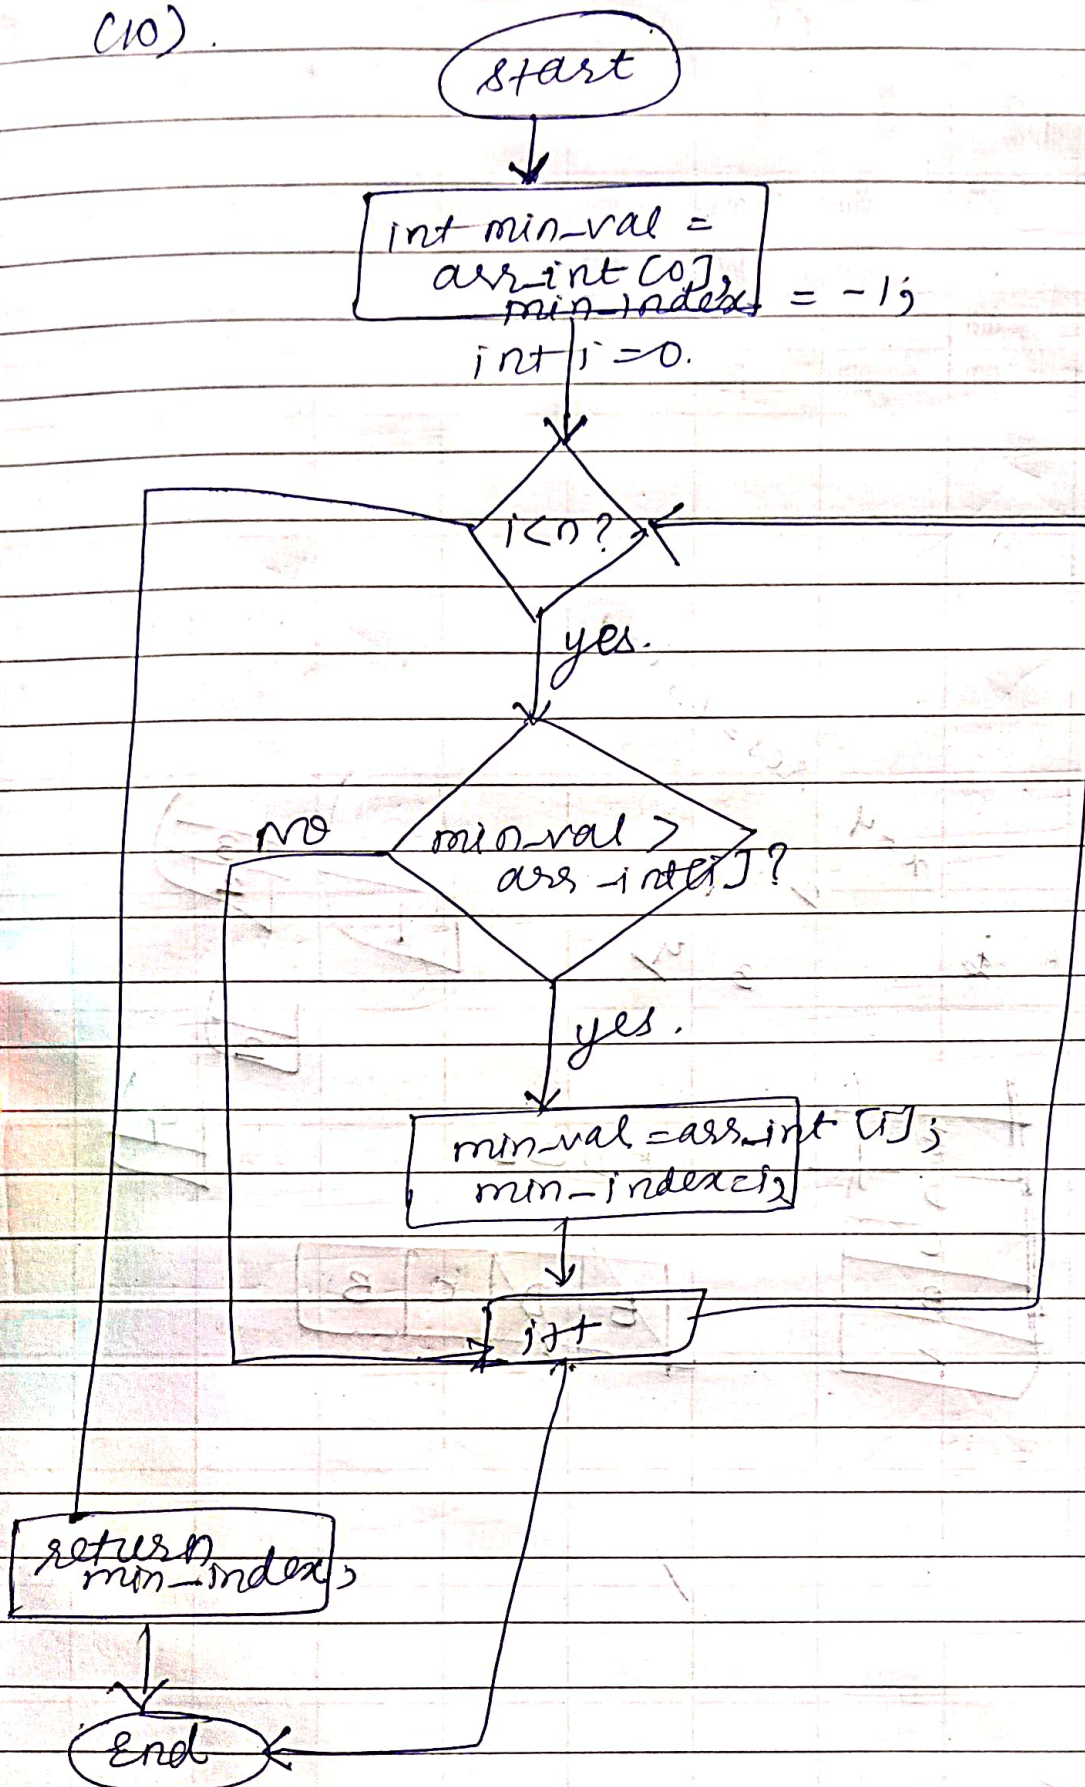 (10).
start
int min_val =
arr_int [0],
min_index = -1;
int i=0.
i<n?
yes.
No
min_val >
arr_int[i]?
yes.
min_val = arr_int [i];
min_index=i;
i++
return
min_index;
End